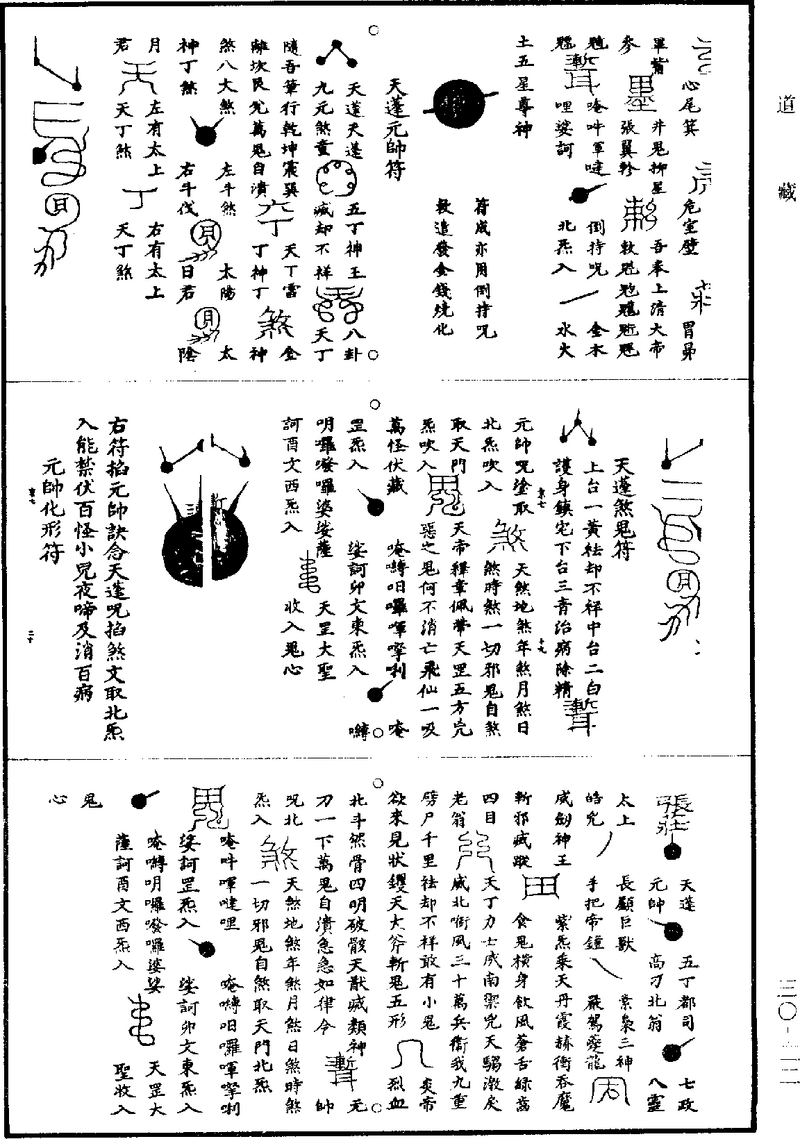 道藏
心尾箕 危室壁 胃昴
畢觜 井鬼柳星 吾奉上清大帝
参 張翼軫
唵吽軍噠 倒持咒 金木
哩娑訶 北炁入 水火
土五星尊神
符成亦用倒持咒
敕造發金錢燒化
天蓬元帥符
天蓬天蓬 五丁神王 八卦
九元煞童 滅却不祥 天丁
隨吾筆行乾坤震巽 天丁雷 金
離坎艮兌萬鬼自潰 丁神丁 神
煞八大煞 左斗煞 太陽 太
神丁煞 右斗伐 日君 陰
月 左有太上 右有太上
君 天丁煞 天丁煞
天蓬煞鬼符
上台一黃祛却不祥中台二白
護身鎮宅下台三青治病除精
元帥咒塗取 天煞地煞年煞月煞日
北炁吹入 煞時煞一切邪鬼自煞
取天門 天帝釋章佩帶天罡五方完
炁吹入 惡之鬼何不消亡飛仙一吸
萬怪伏藏 唵囀呬囉喗㗚唎 唵
罡炁入 娑訶卯文東炁入 囀
明囉發囉娑娑薩 天罡大聖
訶酉文西炁入 收入鬼心
右符掐元帥訣念天蓬咒掐煞文取北炁
入能禁伏百怪小兒夜啼及消百病
元帥化形符
天蓬 五丁都司 七政
太上 元帥 高刁北翁 八靈
皓兇 長顱巨獸 素梟三神
威劍神王 手把帝鐘 嚴駕夔龍
斬邪滅蹤 紫炁乘天丹霞赫衝吞魔
四目 食鬼橫身飲風蒼舌綠齒
老翁 天丁力士威南禦兇天騶激戾
威北銜風三十萬兵衛我九重
劈尸千里祛却不祥敢有小鬼 炎帝
欲來見狀钁天大斧斬鬼五形 烈血
北斗然骨四明破骸天猷滅類神
刀一下萬鬼自潰急急如律令 元
咒北 天煞地煞年煞月煞日煞時煞 帥
炁入 一切邪鬼自煞取天門北炁
唵吽喗噠哩 唵囀呬囉喗㗚唎
娑訶罡炁入 娑訶卯文東炁入
唵囀明囉發囉娑娑 天罡大
薩訶酉文西炁入 聖收入
鬼
心
三〇-二二